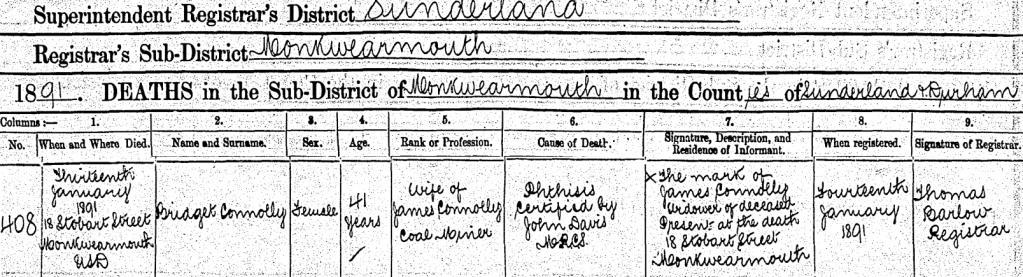 Superintendent Registrar's District Sunderland
Registrar's Sub-District Monkwearmouth
1891. DEATHS in the Sub-District of Monkwearmouth in the Counties of Sunderland & Durham
Columns :— 1. 2. 3. 4. 5. 6. 7. 8. 9.
No. When and Where Died. Name and Surname. Sex. Age. Rank or Profession. Cause of Death. Signature, Description, and Residence of Informant. When registered. Signature of Registrar.
408
Thirteenth
January
1891
18 Stobart Street
Monkwearmouth
USD
Bridget Connolly
Female
41
years
Wife of
James Connolly
Coal Miner
Phthisis
Certified by
John Davis
MRCS
X The mark of
James Connolly
Widower of deceased
Present at the death
18 Stobart Street
Monkwearmouth
Fourteenth
January
1891
Thomas
Barlow
Registrar